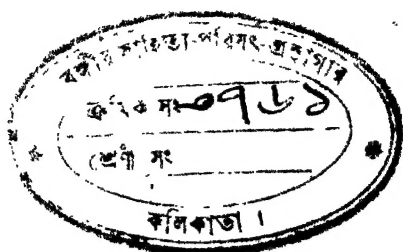 বঙ্গীয় সাহিত্য-পরিষৎ-গ্রন্থাগার
ক্রমিক সং ৩৭৬১
শ্রেণী সং
কলিকাতা ।